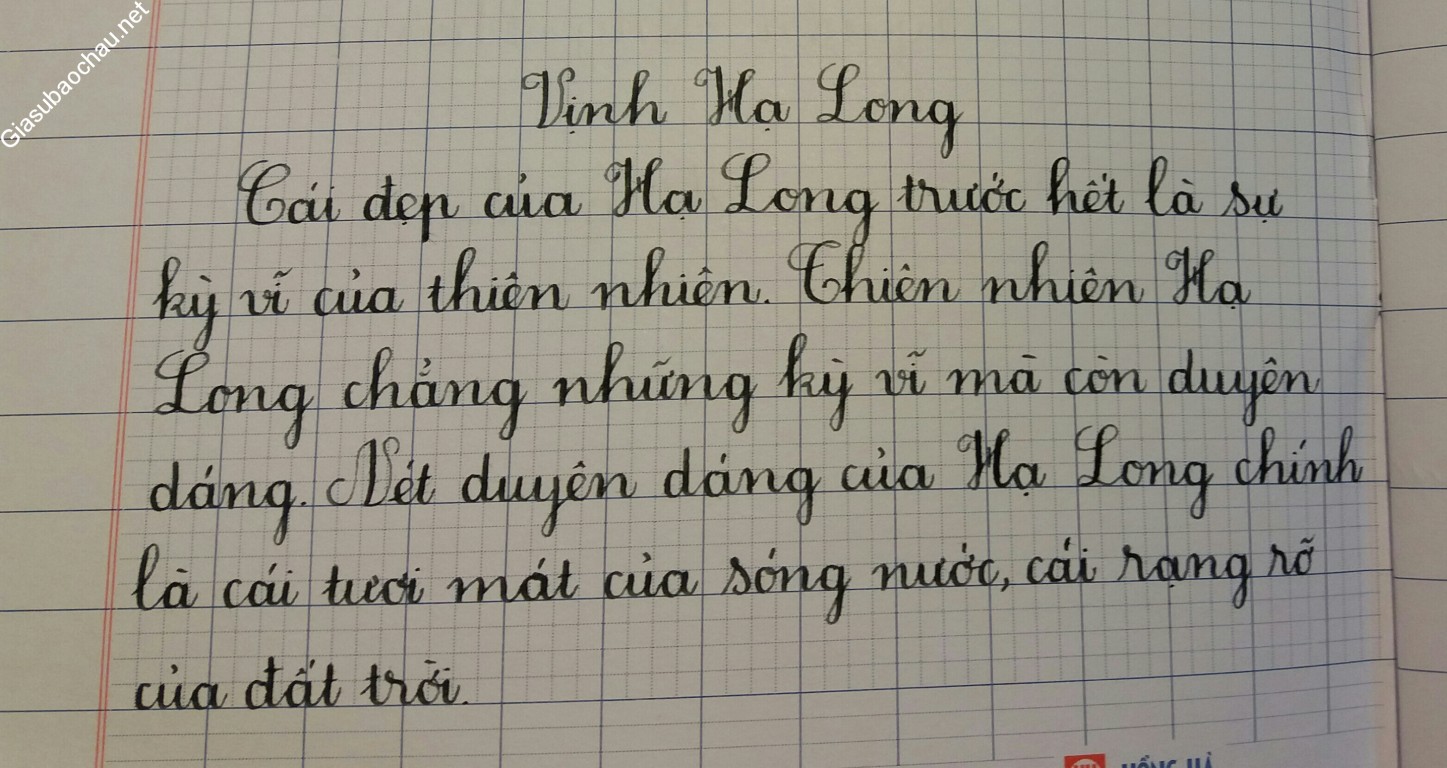 Giasubaochau.net
Vịnh Hạ Long
Cái đẹp của Hạ Long trước hết là sự
kỳ vĩ của thiên nhiên. Thiên nhiên Hạ
Long chẳng những kỳ vĩ mà còn duyên
dáng. Nét duyên dáng của Hạ Long chính
là cái tươi mát của sóng nước, cái rạng rỡ
của đất trời.